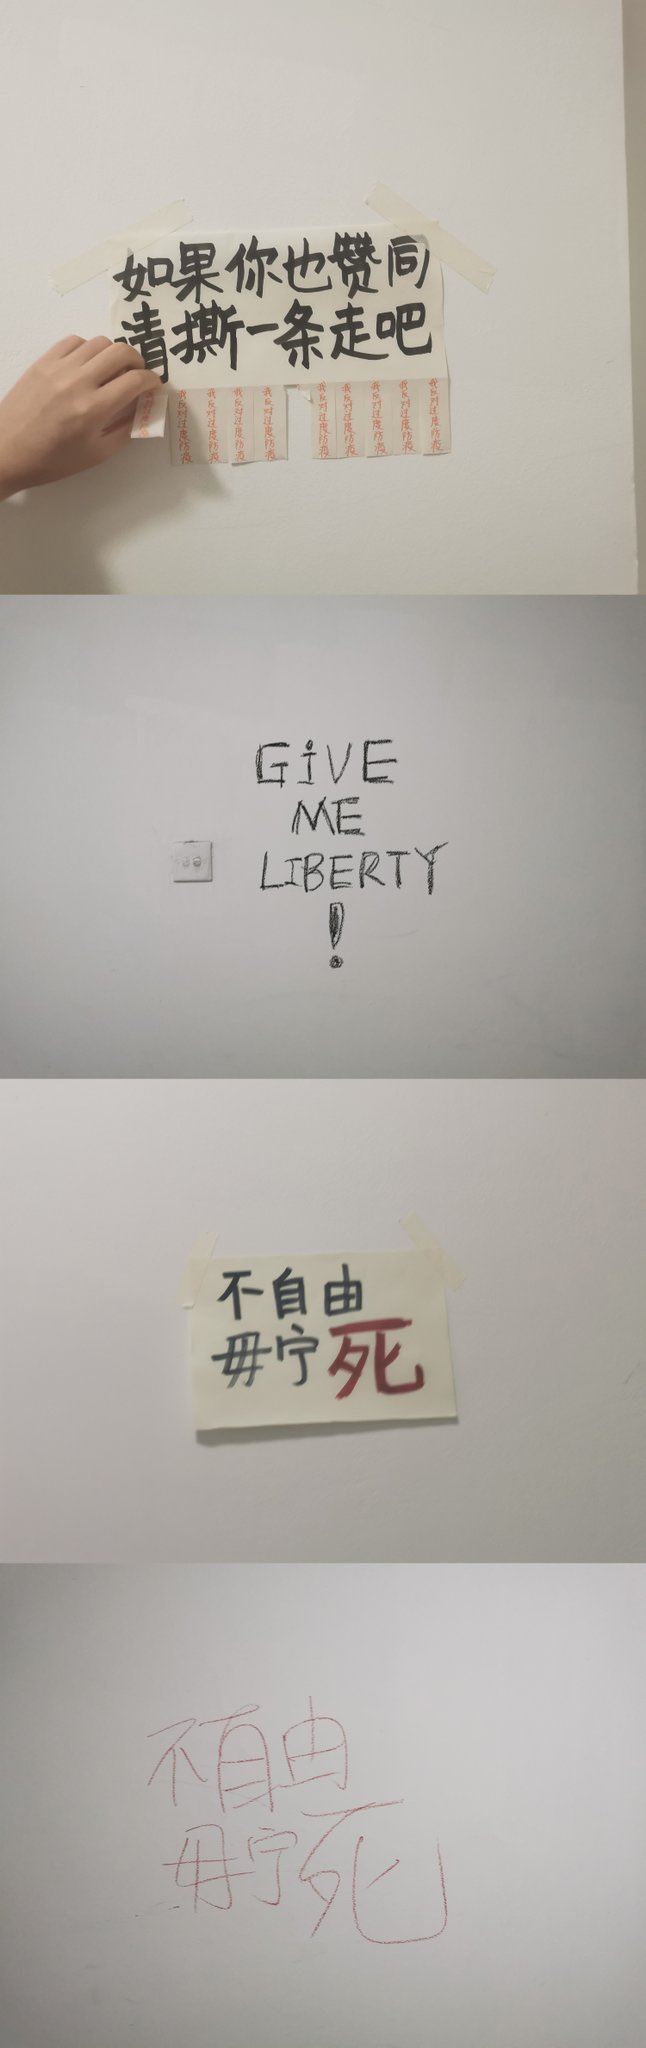 如果你也赞同
请撕一条走吧
我反对过度防疫
我反对过度防疫
我反对过度防疫
我反对过度防疫
我反对过度防疫
我反对过度防疫
我反对过度防疫
我反对过度防疫
我反对过度防疫
我反对过度防疫
GiVE
ME
LIBERTY
!
不自由
毋宁死
不自由
毋宁死